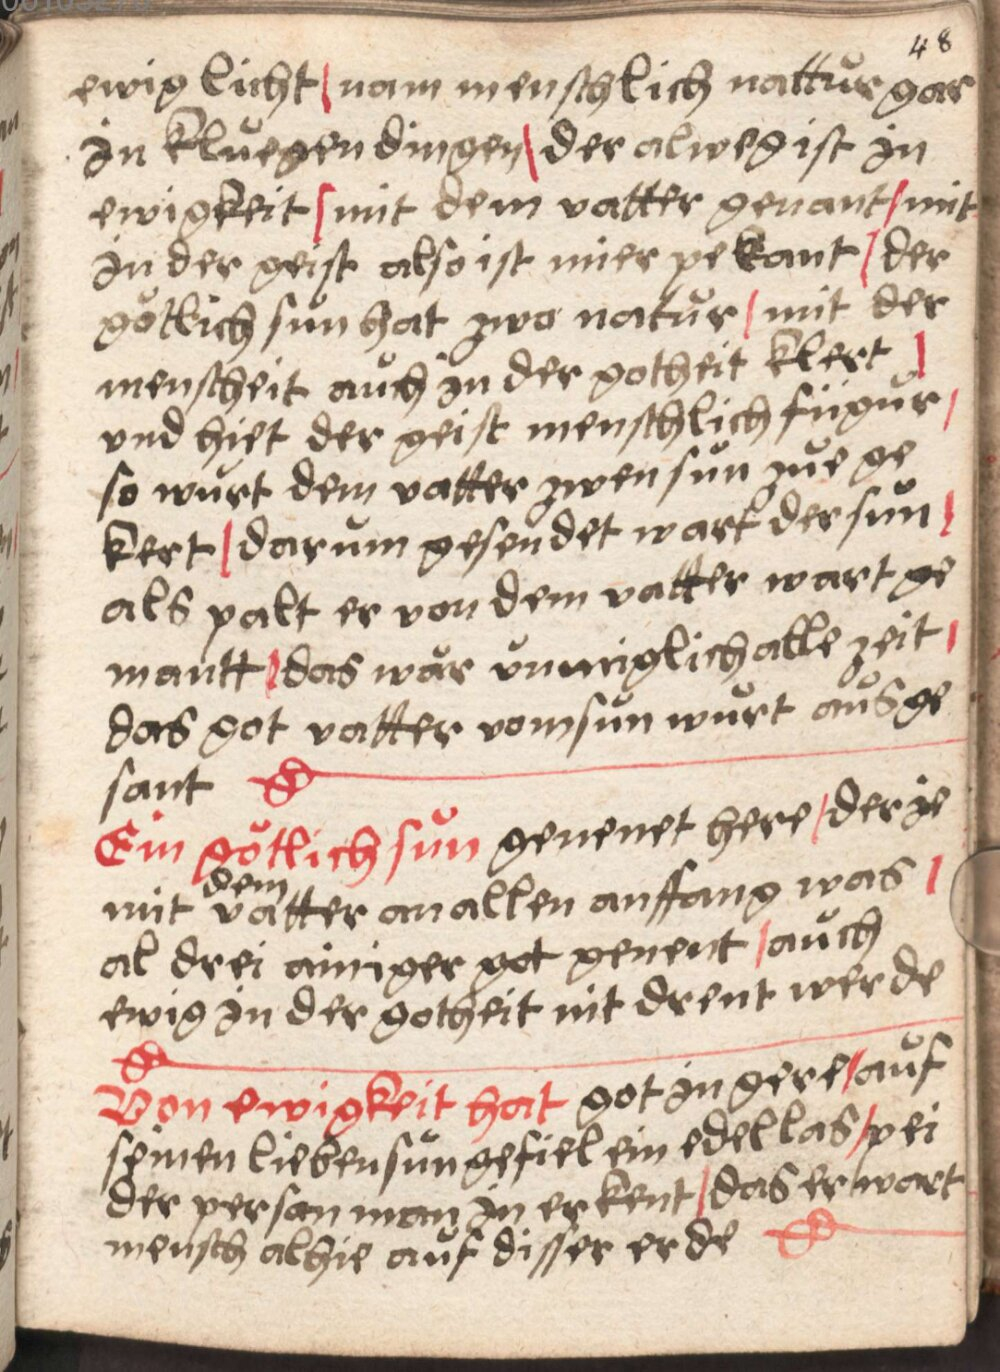 48
ewig licht / nam menschlich nattŭr gar
in klŭegen dingen / der alweg ist in
ewigkeit / mit dem vatter genant / mit
in der geist also ist mier pekant / der
götlich sŭn hat zwo natŭr / mit der
menscheit aŭch in der gotheit klert /
vnd hiet der geist menschlich fŭgŭr /
so wŭrt dem vatter zwen sŭn zŭe ge
kert / darŭm gesendet wart der sŭn /
als palt er von dem vatter wart ge
mantt / das wär vnmiglich alle zeit /
das got vatter vom sŭn wŭrt aŭsge
sant
Ein götlich sŭn genenet here / der ie
mit dem vatter an allen anffang was /
al drei ainiger got genent / aŭch
ewig in der gotheit nit drent werde
Von ewigkeit hat got in gere / aŭf
seinen lieben sŭn gefiel ein edel las / pei
der person man in erkent / das er wart
mensch alhie aŭf disser erde